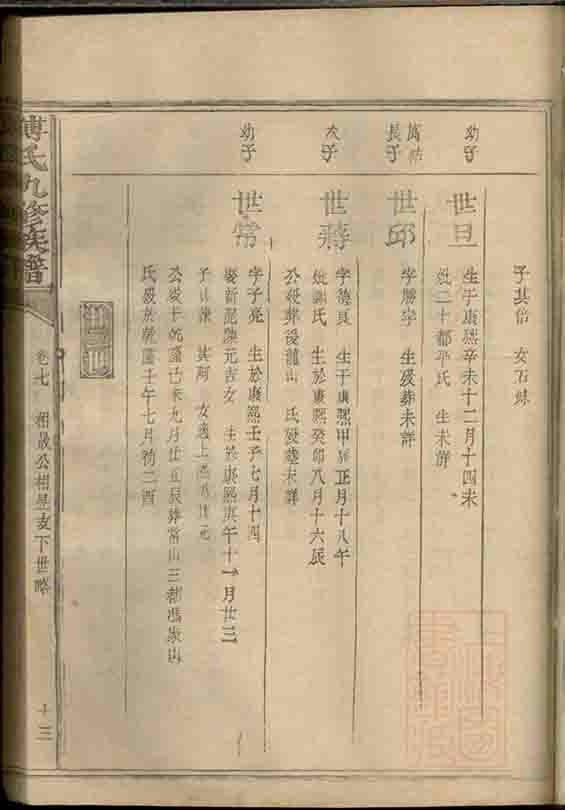 子其伯 女石妹
幼子
世旦
生于康熙辛未十二月十四未
妣二十都平氏 生未詳
長子
世邱
字勝宇 生歿葬未詳
次子
世蔣
字德良 生于康熙甲 正月十八午
妣謝氏 生於康熙癸卯八月十六辰
公歿葬後龍山 氏歿葬未詳
幼子
世常
字子亮 生於康熙壬子七月十四
娶新 陳元吉女 生於康熙庚午十一月廿三
子 其阿 女適上
公歿于乾隆己未九月廿五辰葬常山三都馮家山
氏歿於乾隆壬午七月初二酉
傅氏九修族譜
卷七 相晟公相昱支下世略
十三